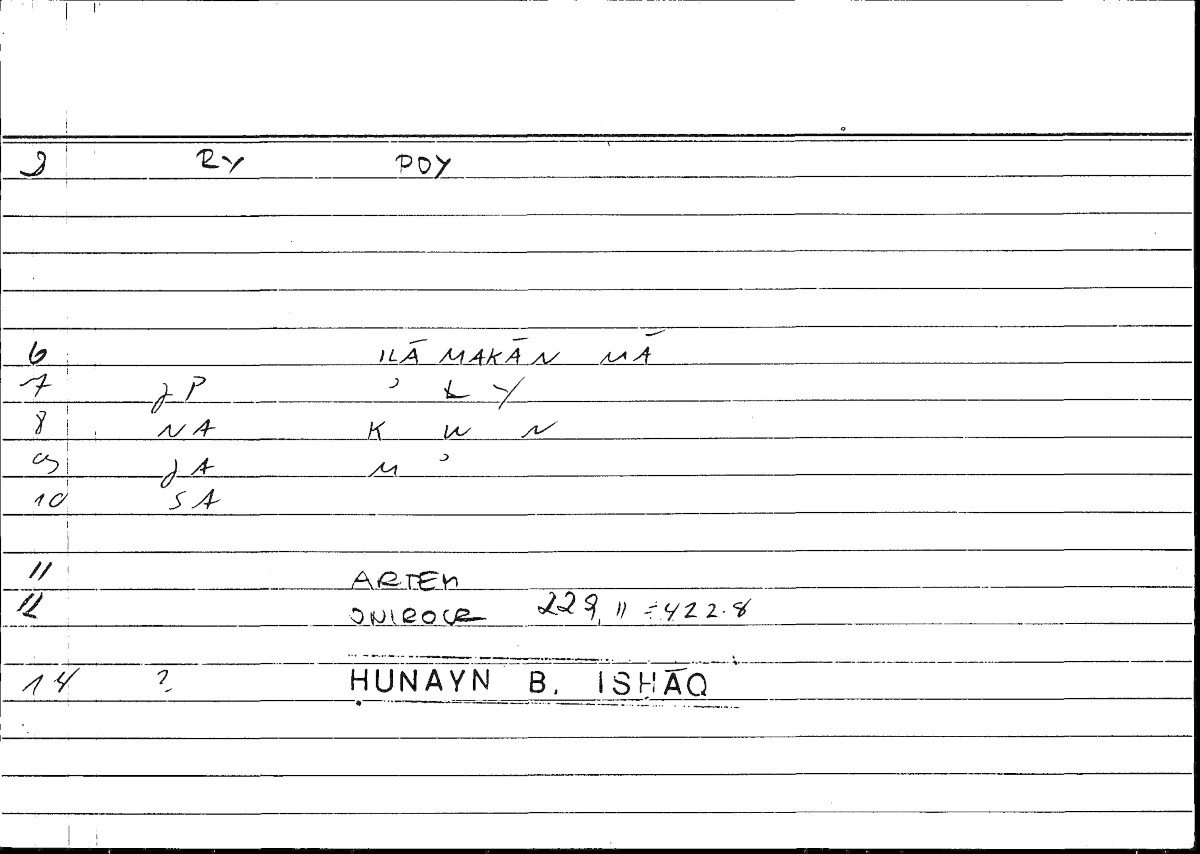 2 RY POY
6 ILĀ MAKĀN MĀ
7 JP ʾ L Y
8 NA K W N
9 JA M ʾ
10 SA
11 ARTEM
12 ONIROCR 229, 11 = 422.8
14 ? ḤUNAYN B. ISḤĀQ